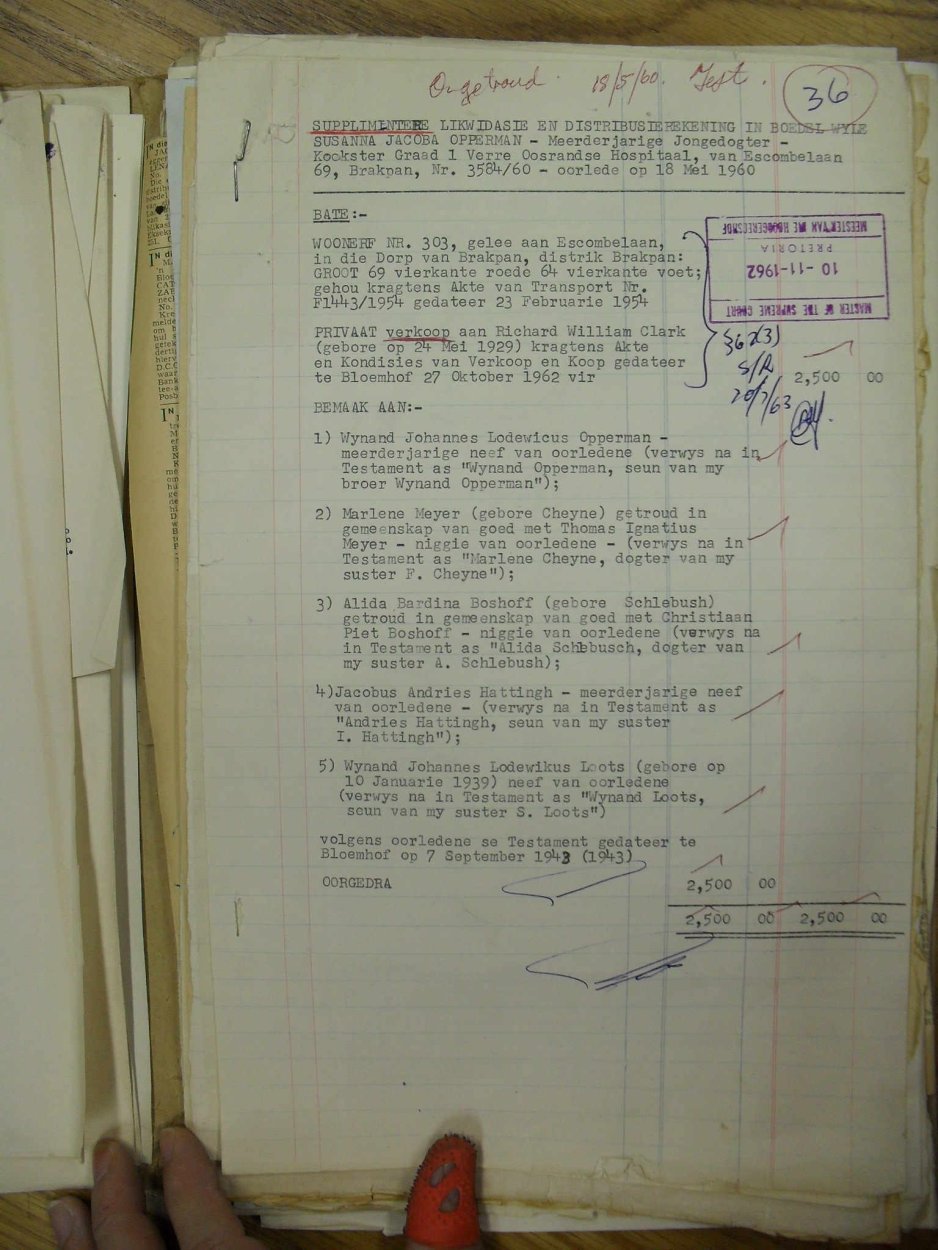 Ongetroud 18/5/60. Test.
36
SUPPLIMINTERE LIKWIDASIE EN DISTRIBUSIEREKENING IN BOEDEL WYLE
SUSANNA JACOBA OPPERMAN - Meerderjarige Jongedogter -
Kookster Graad 1 Verre Oosrandse Hospitaal, van Escombelaan
69, Brakpan, Nr. 3584/60 - oorlede op 18 Mei 1960
BATE:-
WOONERF NR. 303, gelee aan Escombelaan,
in die Dorp van Brakpan, distrik Brakpan:
GROOT 69 vierkante roede 64 vierkante voet;
gehou kragtens Akte van Transport Nr.
F1443/1954 gedateer 23 Februarie 1954
MASTER OF THE SUPREME COURT
10-11-1962
PRETORIA
MEESTER VAN DIE HOOGGEREGSHOF
PRIVAAT verkoop aan Richard William Clark
(gebore op 24 Mei 1929) kragtens Akte
en Kondisies van Verkoop en Koop gedateer
te Bloemhof 27 Oktober 1962 vir
2,500 00
S/R
BEMAAK AAN:-
1) Wynand Johannes Lodewicus Opperman -
meerderjarige neef van oorledene (verwys na in
Testament as "Wynand Opperman, seun van my
broer Wynand Opperman");
2) Marlene Meyer (gebore Cheyne) getroud in
gemeenskap van goed met Thomas Ignatius
Meyer - niggie van oorledene - (verwys na in
Testament as "Marlene Cheyne, dogter van my
suster F. Cheyne");
3) Alida Bardina Boshoff (gebore Schlebush)
getroud in gemeenskap van goed met Christiaan
Piet Boshoff - niggie van oorledene (verwys na
in Testament as "Alida Schlebusch, dogter van
my suster A. Schlebush);
4)Jacobus Andries Hattingh - meerderjarige neef
van oorledene - (verwys na in Testament as
"Andries Hattingh, seun van my suster
I. Hattingh");
5) Wynand Johannes Lodewikus Loots (gebore op
10 Januarie 1939) neef van oorledene
(verwys na in Testament as "Wynand Loots,
seun van my suster S. Loots")
volgens oorledene se Testament gedateer te
Bloemhof op 7 September 1943 (1943)
OORGEDRA 2,500 00
2,500 00 2,500 00